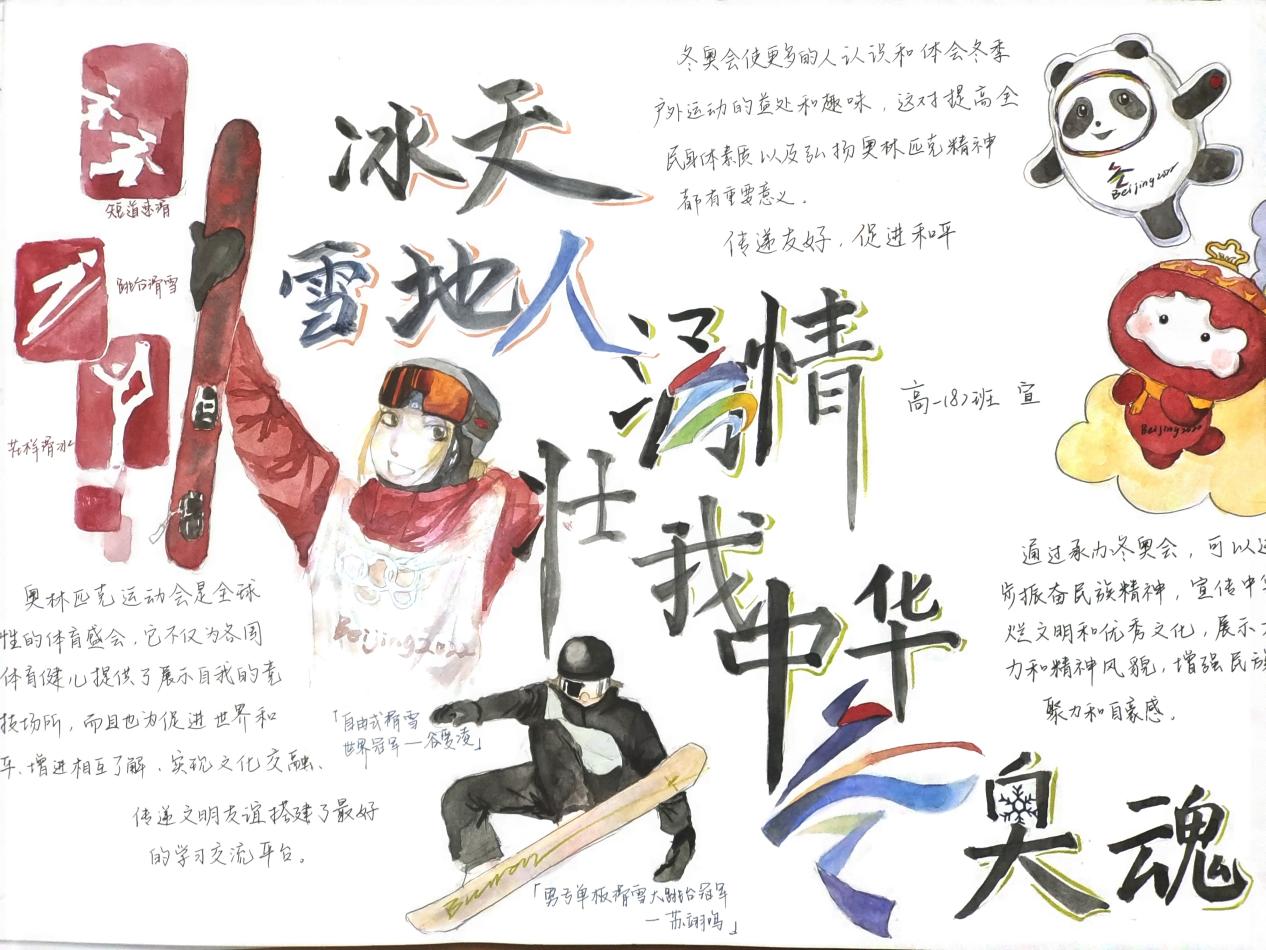 冰天
雪地人
满情
壮我
中华
奥魂
冬奥会使更多的人认识和体会冬季
户外运动的益处和趣味，这对提高全
民身体素质以及弘扬奥林匹克精神
都有重要意义。
传递友好，促进和平
Beijing2022
短道速滑
跳台滑雪
花样滑冰
高一(8)班 宣
Beijing2022
通过承办冬奥会，可以
步振奋民族精神，宣传中
烂文明和优秀文化，展示
力和精神风貌，增强民族
聚力和自豪感。
Beijing2022
奥林匹克运动会是全球
性的体育盛会，它不仅为各国
体育健儿提供了展示自我的竞
技场所，而且也为促进世界和
平、增进相互了解、实现文化交融、
传递文明友谊搭建了最好
的学习交流平台。
「自由式滑雪
世界冠军—谷爱凌」
Burton
「男子单板滑雪大跳台冠军
—苏翊鸣」